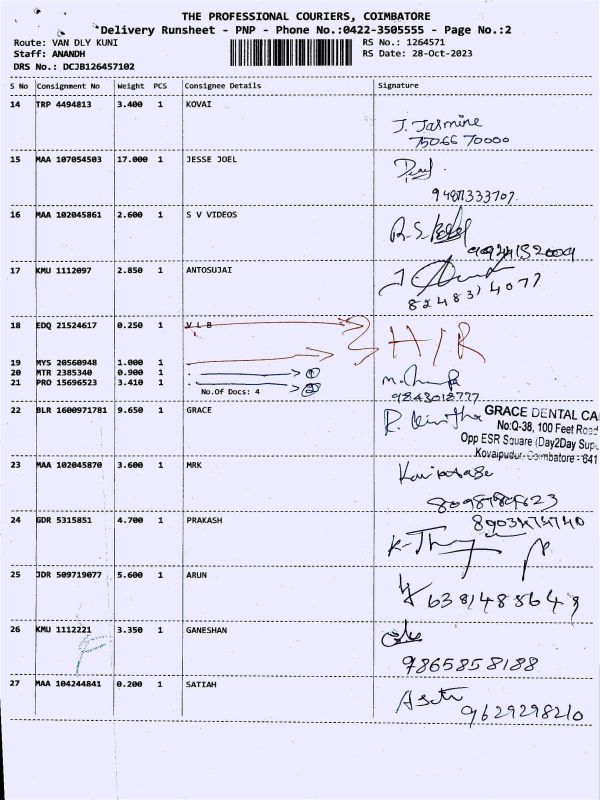 THE PROFESSIONAL COURIERS, COIMBATORE
Delivery Runsheet - PNP - Phone No.:0422-3505555 - Page No.:2
Route: VAN DLY KUNI RS No.: 1264571
Staff: ANANDH RS Date: 28-Oct-2023
DRS No.: DCJB126457102
S No Consignment No Weight PCS Consignee Details Signature
14 TRP 4494813 3.400 1 KOVAI
J. Jasmine
75066 70000
15 MAA 107054503 17.000 1 JESSE JOEL
9487333707
16 MAA 102045861 2.600 1 S V VIDEOS
R.S.
17 KMU 1112097 2.850 1 ANTOSUJAI
8248314077
18 EDQ 21524617 0.250 1 V L B
H/R
19 MYS 20560948 1.000 1 .
20 MTR 2385340 0.900 1 . 1
21 PRO 15696523 3.410 1 . 2
No.Of Docs: 4
9843018777
22 BLR 1600971781 9.650 1 GRACE
GRACE DENTAL CA
No:Q-38, 100 Feet Road
Opp ESR Square (Day2Day Sup
Kovaipudur, Coimbatore - 641
23 MAA 102045870 3.600 1 MRK
24 GDR 5315851 4.700 1 PRAKASH
25 JDR 509719077 5.600 1 ARUN
26 KMU 1112221 3.350 1 GANESHAN
9865858188
27 MAA 104244841 0.200 1 SATIAH
9629298210